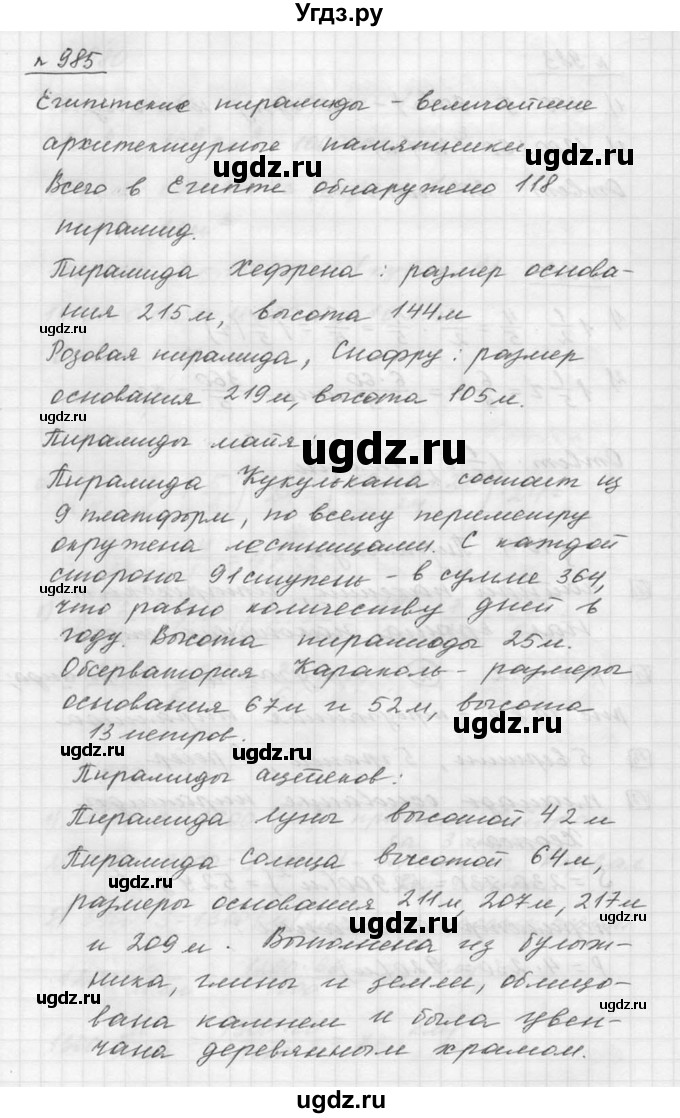 Угдз.ру
№ 985
Египетские пирамиды - величайшие
архитектурные памятники.
ugdz.ru
ugdz.ru
Всего в Египте обнаружено 118
пирамид.
Пирамида Хефрена: размер основа-
ния 215м, высота 144м
ugdz.ru
Розовая пирамида, Снофру: размер
основания 219м, высота 105м.
Пирамиды майя:
ugdz.ru
Пирамида Кукулькана состоит из
9 платформ, по всему периметру
окружена лестницами. С каждой
стороны 91 ступень - в сумме 364,
ugdz.ru
что равно количеству дней в
году. Высота пирамиды 25м.
Обсерватория Караколь - размеры
основания 67м и 52м, высота
ugdz.ru
13 метров.
ugdz.ru
ugdz.ru
Пирамиды ацтеков:
Пирамида Луны высотой 42м
Пирамида Солнца высотой 64м,
размеры основания 211м, 207м, 217м
ugdz.ru
и 209м. Выполнена из булыж-
ника, глины и земли, облицо-
ugdz.ru
ugdz.ru
вана камнем и была увен-
чана деревянным храмом.
ugdz.ru
ugdz.ru